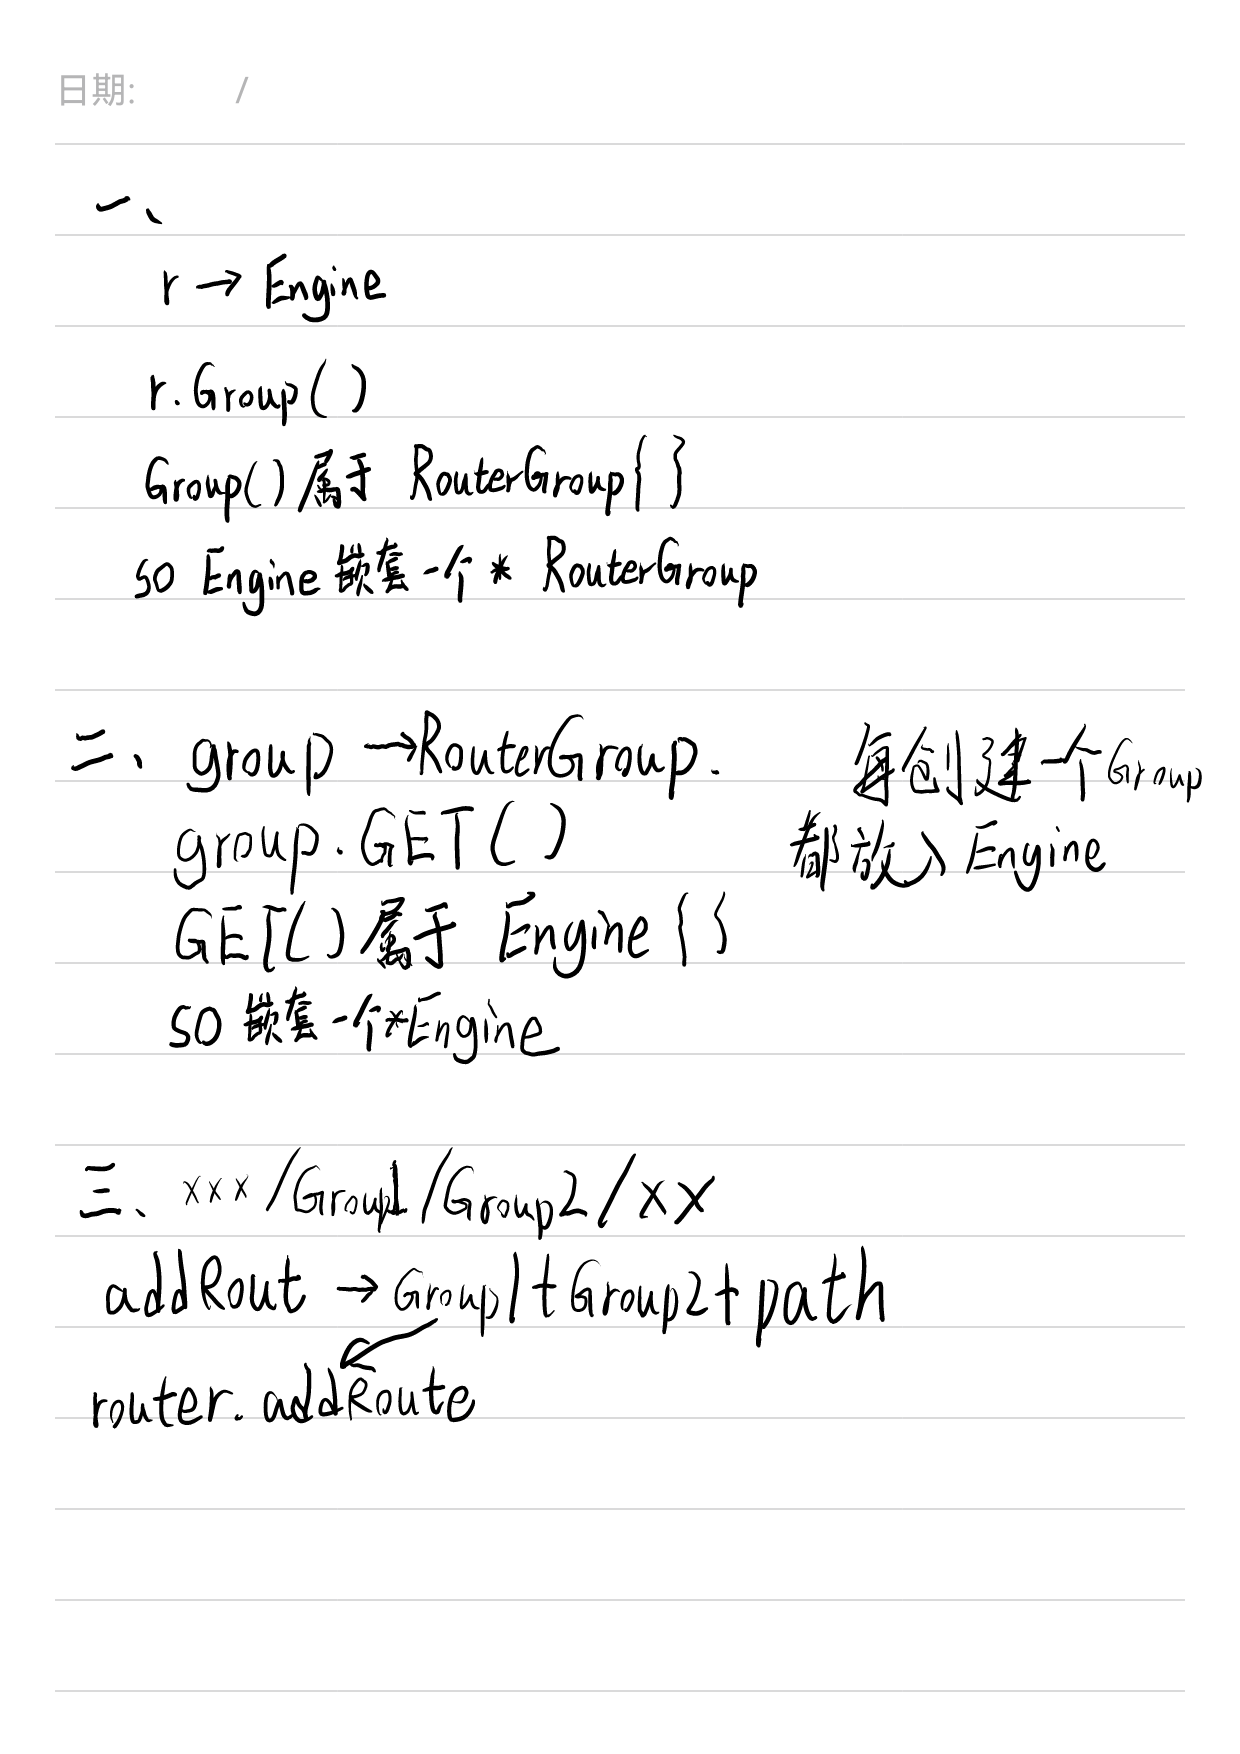 日期: /
一、
r → Engine
r.Group( )
Group()属于 RouterGroup{ }
so Engine 嵌套一个 * RouterGroup
二、group →RouterGroup.
group.GET( )
GET()属于 Engine { }
so 嵌套一个*Engine
每创建一个Group
都放入 Engine
三、xxx /Group1/Group2/xx
addRout → Group1+Group2+path
router. addRoute